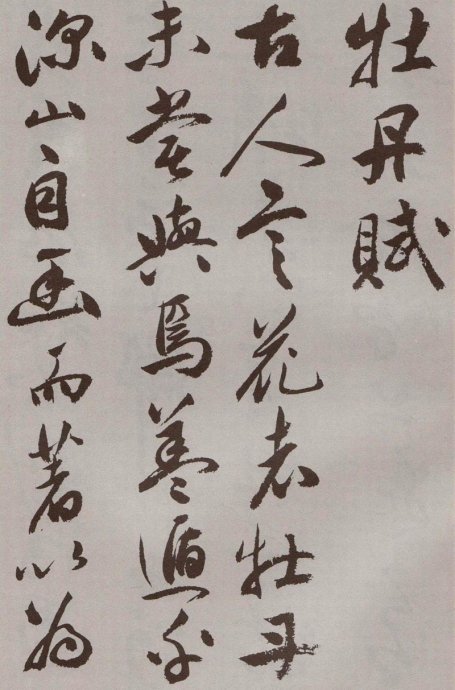 牡丹賦
古人言花者牡丹
未嘗與焉蓋遁乎
深山自幽而著以為